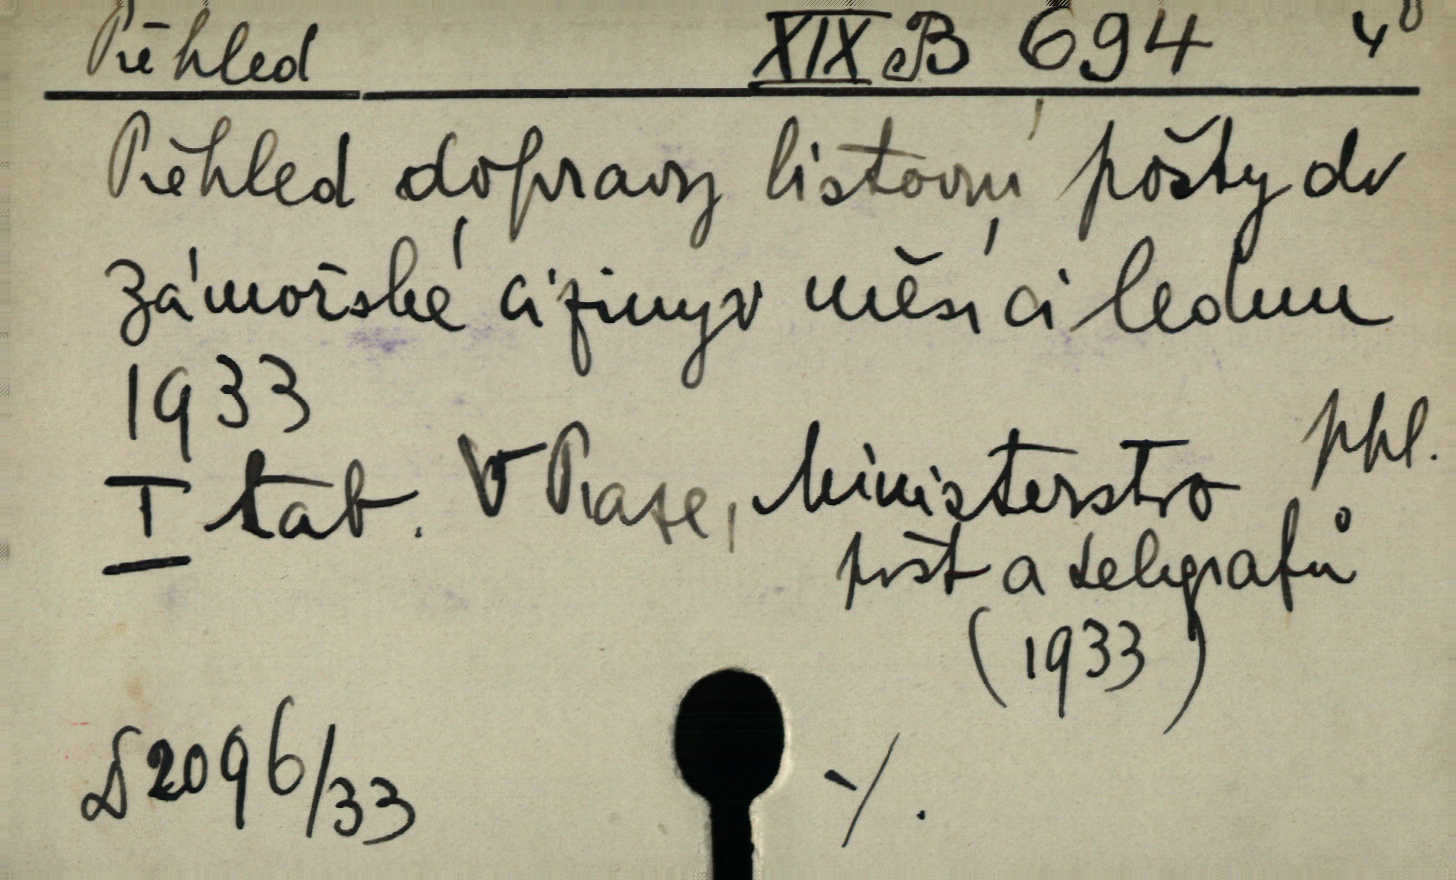 Přehled XIX B 694 4°
Přehled dopravy listovní pošty do
zámořské ciziny v měsíci lednu
1933
ppl.
I tab. V Praze, Ministerstvo
pošt a telegrafů
(1933)
D 2096/33
·/.